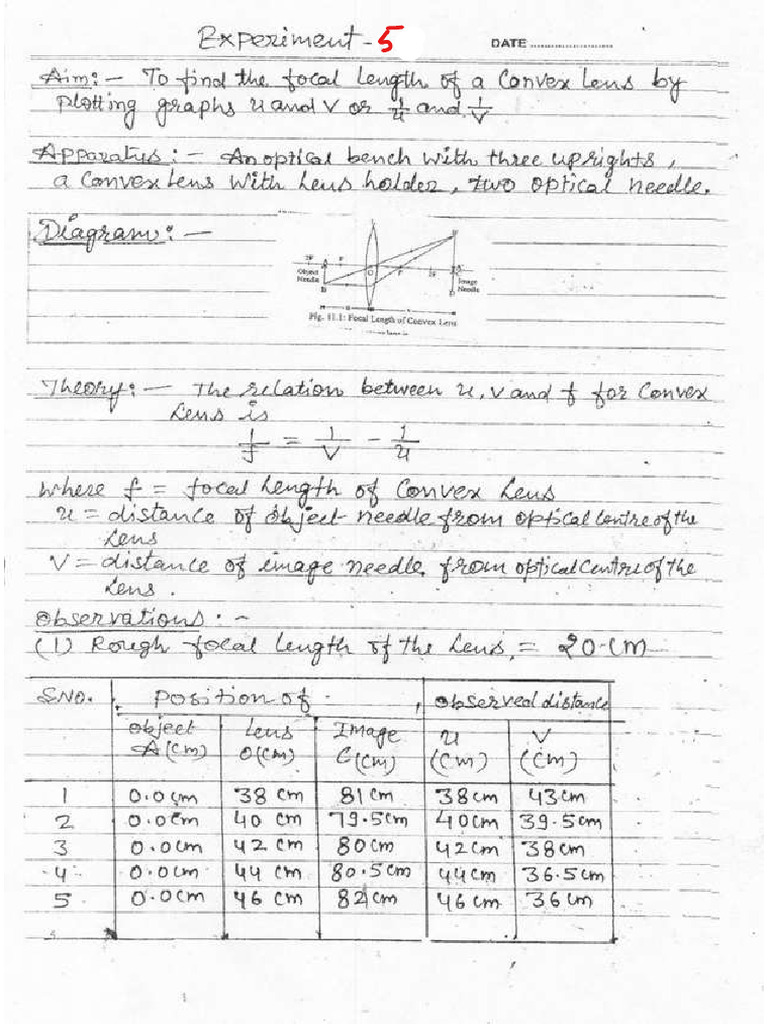 Experiment - 5
DATE
Aim:- To find the focal length of a convex lens by
plotting graphs u and v or 1/u and 1/v
Apparatus:- An optical bench with three uprights,
a convex lens with lens holder, two optical needle.
Diagram:-
2F F O F 2F
Object Needle
Image Needle
B
Fig. 11.1: Focal Length of Convex Lens
Theory:- The relation between u, v and f for convex
lens is
1/f = 1/v - 1/u
where f = focal length of convex lens
u = distance of object needle from optical centre of the
lens
v = distance of image needle from optical centre of the
lens.
Observations:-
(1) Rough focal length of the lens, = 20 cm
S.NO. Position of Observed distance
Object A(cm) Lens O(cm) Image C(cm) u (cm) v (cm)
1 0.0cm 38 cm 81 cm 38cm 43cm
2 0.0cm 40 cm 79.5cm 40cm 39.5cm
3 0.0cm 42 cm 80cm 42cm 38cm
4 0.0cm 44 cm 80.5cm 44cm 36.5cm
5 0.0cm 46 cm 82cm 46cm 36cm